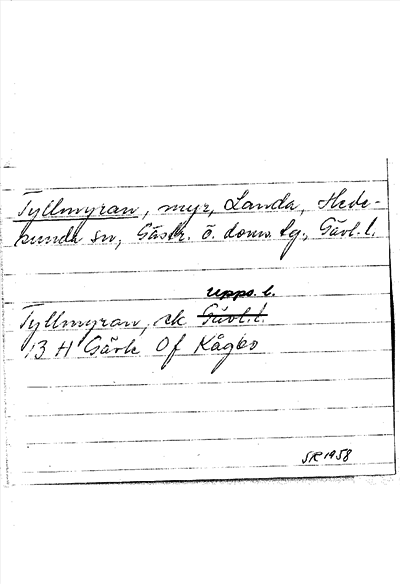 Tyllmyran, myr, Landa, Hede-
sunda sn, Gästr. ö. doms. tg, Gävl. l.
Upps. l.
Tyllmyran, sk Gävl. l.
13 H Gävle 0f Kågbo
SR 1958